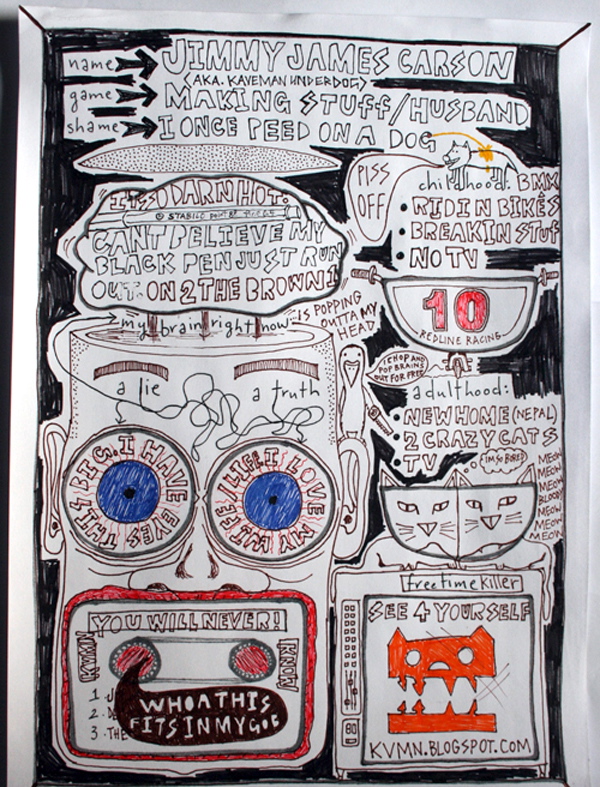 name → JIMMY JAMES CARSON
(AKA. KAVEMAN UNDERDOG)
game → MAKING STUFF/HUSBAND
shame → I ONCE PEED ON A DOG
PISS
OFF
childhood: BMX
• RIDIN BIKES
• BREAKIN STUF
• NO TV
IT'S O DARN HOT.
© STABILO point 88
CANT BELIEVE MY
BLACK PEN JUST RUN
OUT. ON 2 THE BROWN 1
my brain right now
IS POPPING
OUTTA MY
HEAD
10
REDLINE RACING
I CHOP AND
POP BRAINS
OUT FOR FREE
a lie
a truth
adulthood:
• NEW HOME (NEPAL)
• 2 CRAZY CATS
• TV
I'M SO BORED
MEOW
MEOW
MEOW
BLOODY
MEOW
MEOW
MEOW
I HAVE EYES THIS BIG.
I LOVE MY WIFE/LIFE.
free time killer
SEE 4 YOURSELF
YOU WILL NEVER!
KVMN
KNOW
1.
2.
3. THE
WHOA THIS
FITS IN MY GOB
KVMN.BLOGSPOT.COM